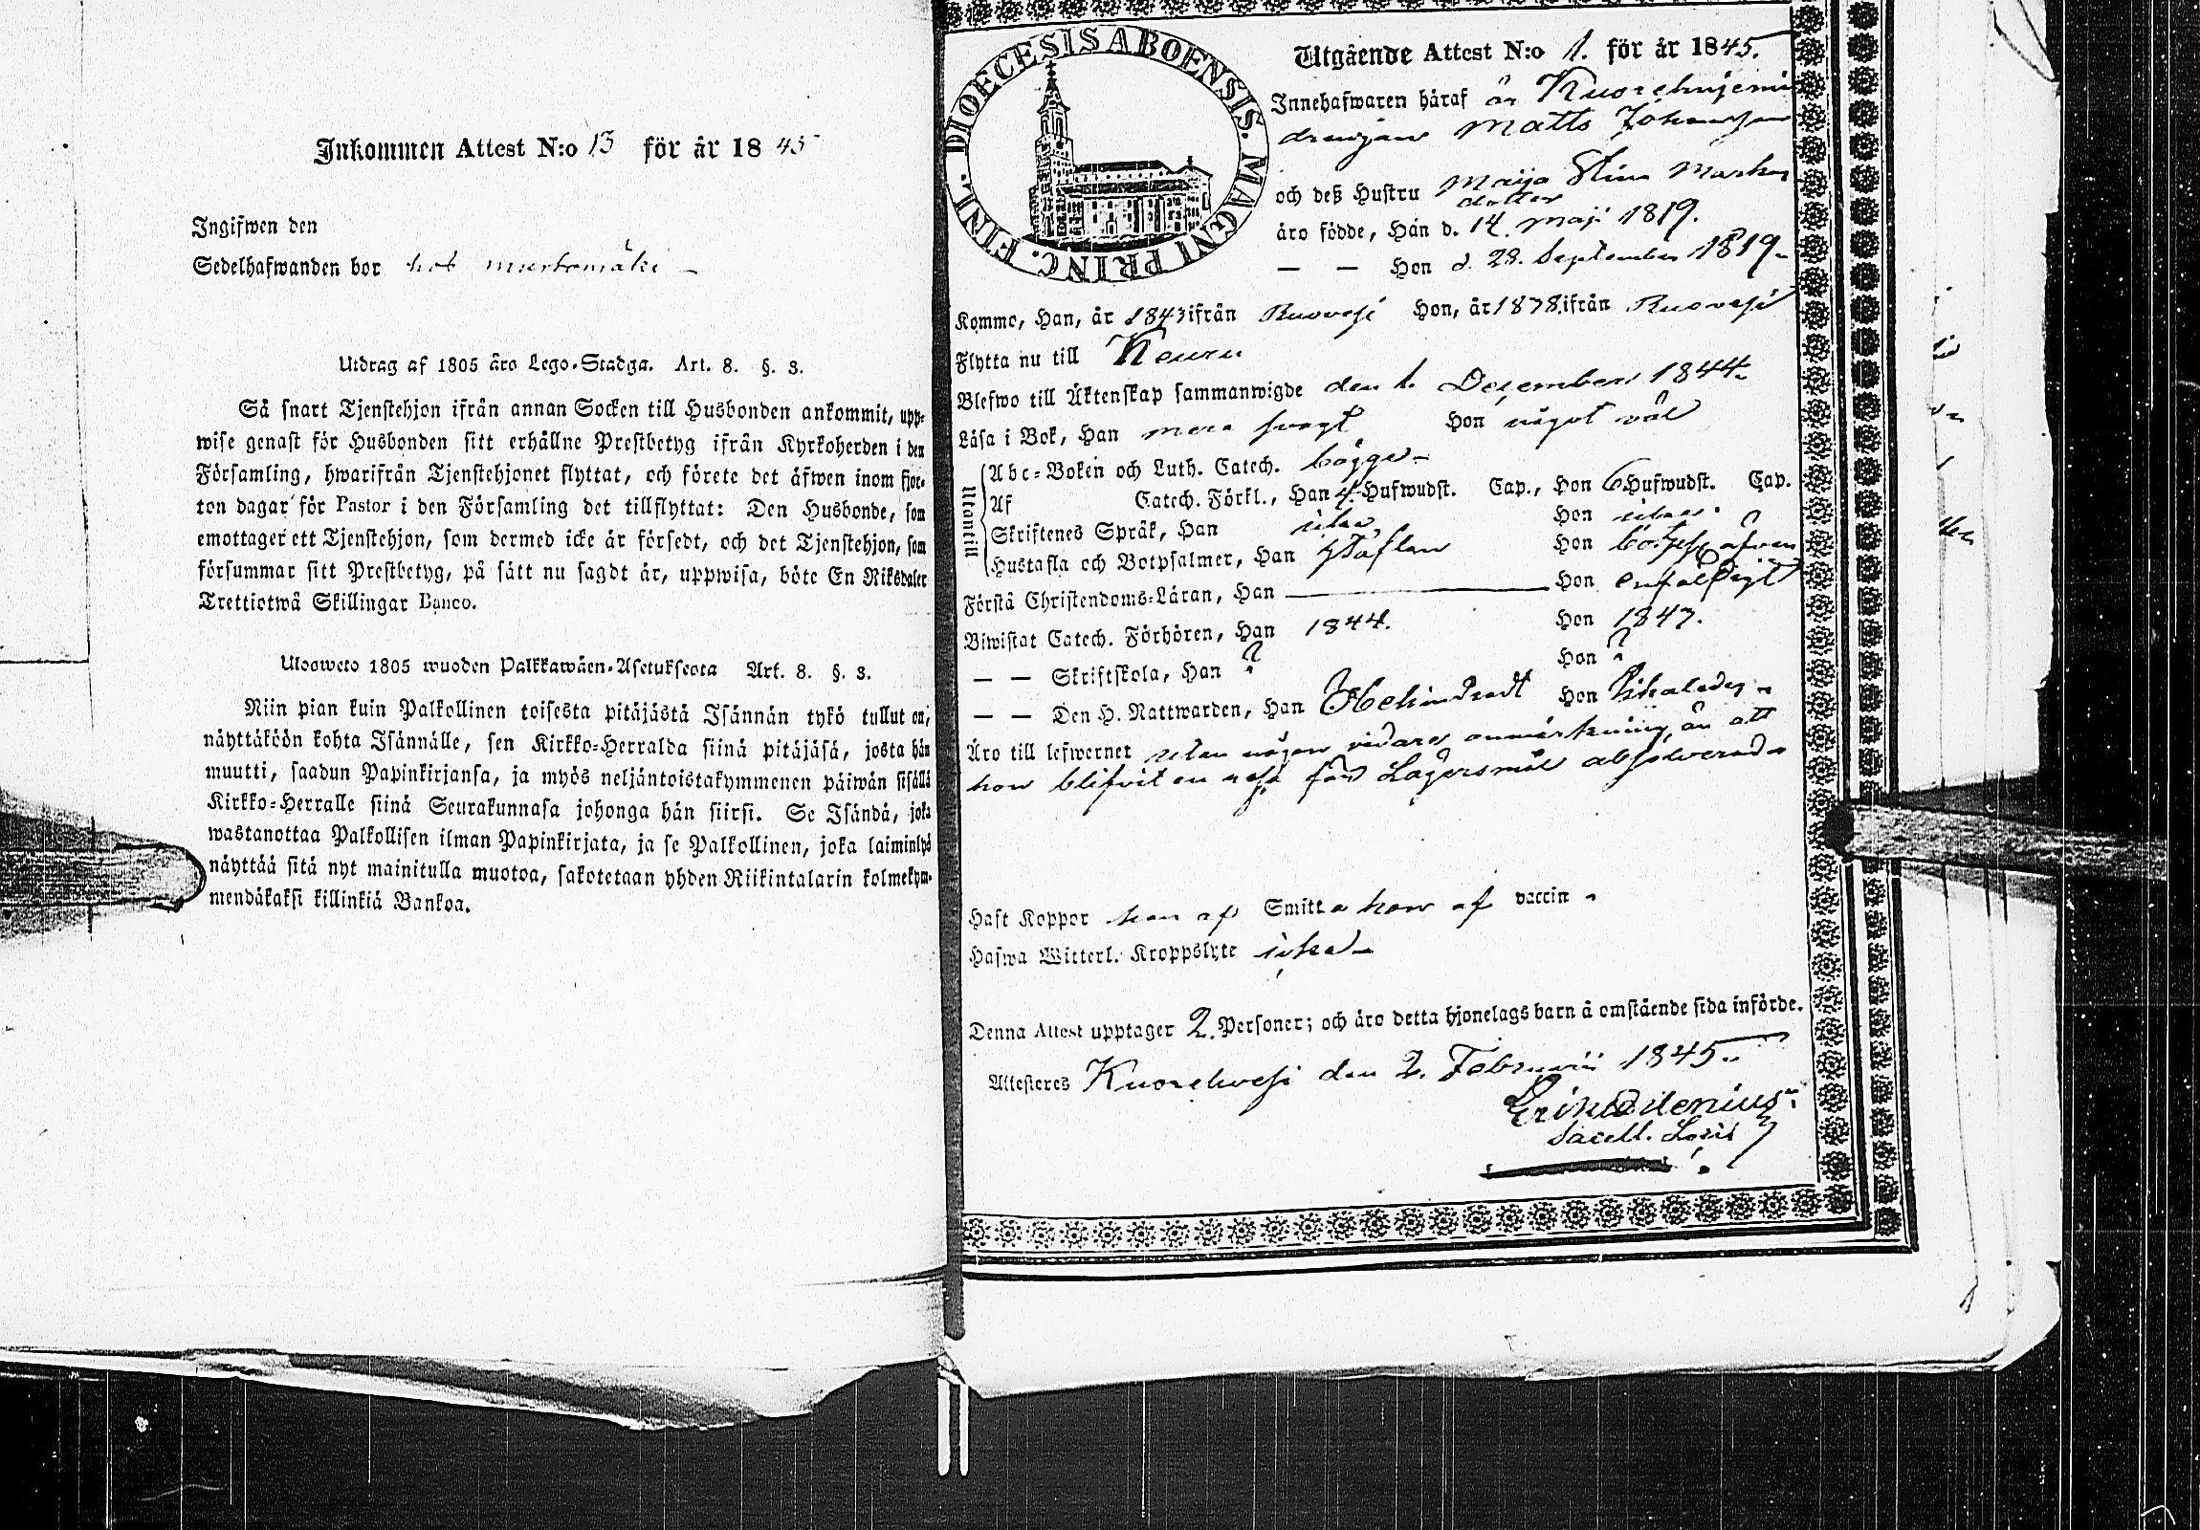 Inkommen Attest N:o 13 för år 1845
Ingifwen den
Sedelhafwanden bor hos murtomäki
Utdrag af 1805 års Lego-Stadga. Art. 8. §. 3.
Så snart Tjenstehjon ifrån annan Socken till Husbonden ankommit, upp-
wise genast för Husbonden sitt erhållne Prestbetyg ifrån Kyrkoherden i den
Församling, hwarifrån Tjenstehjonet flyttat, och förete det äfwen inom fjor-
ton dagar för Pastor i den Församling det tillflyttat: Den Husbonde, som
emottager ett Tjenstehjon, som dermed icke är försedt, och det Tjenstehjon, som
försummar sitt Prestbetyg, på sätt nu sagdt är, uppwisa, böte En Riksdaler
Trettiotwå Skillingar Banco.
Ulosweto 1805 wuoden Palkkawäen-Asetuksesta Art. 8. §. 3.
Niin pian kuin Palkollinen toisesta pitäjästä Isännän tykö tullut on,
näyttäköön kohta Isännälle, sen Kirkko-Herralda siinä pitäjäsä, josta hän
muutti, saadun Papinkirjansa, ja myös neljäntoistakymmenen päiwän sisällä
Kirkko-Herralle siinä Seurakunnasa johonga hän siirsi. Se Isändä, joka
wastanottaa Palkollisen ilman Papinkirjata, ja se Palkollinen, joka laiminlyö
näyttää sitä nyt mainitulla muotoa, sakotetaan yhden Riikintalarin kolmekym-
mendäkaksi killinkiä Bankoa.
DIOECESIS ABOENSIS. MAGNI PRINC. FINL.
Utgående Attest N:o 1. för år 1845.
Innehafwaren häraf är
drängen Matts Johansson
och deß Hustru Maija Stina Markus
dotter
äro födde, Han d. 14. Maji 1819.
— — Hon d. 28. September 1819
Komne, Han, år 1843 ifrån Ruovesi Hon, år 1878 ifrån Ruovesi
Flytta nu till Keuru
Blefwo till Äktenskap sammanwigde den 1. December 1844
Läsa i Bok, Han mera svagt Hon något väl
Utantill
Abc-Boken och Luth. Catech. bägge
Af Catech. Förkl., Han 4 Hufwudst. Cap., Hon 6 Hufwudst. Cap.
Skriftenes Språk, Han utan Hon utan
Hustafla och Botpsalmer, Han Hon
Förstå Christendoms-Läran, Han — Hon enfaldigt
Biwistat Catech. Förhören, Han 1844. Hon 1843.
— — Skriftskola, Han ? Hon ?
— — Den H. Nattwarden, Han Hon likaledes
Äro till lefwernet utan någon vidare anmärkning, än att
hon blifvit en resa för Lägersmål absolverad
Haft Koppor han af Smitta hon af vaccin
Hafwa Witterl. Kroppslyte icke
Denna Attest upptager 2. Personer; och äro detta hjonelags barn å omstående sida införde.
Attesteras Kuorehvesi den 2. Februarii 1845
Erik
Sacell. Loci